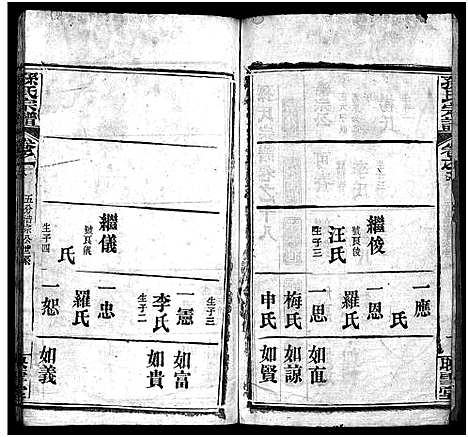 孫氏宗譜
繼俊
號頁俊
汪氏
生子三
一應
氏
一恩
羅氏
一思
如直
梅氏
如諒
申氏
如賢
一憲
生子三
如富
李氏
生子二
如貴
繼儀
號頁儀
氏
生子四
一忠
羅氏
一恕
如義
孫氏宗譜